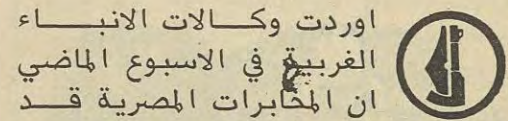 اوردت وكالات الانباء
الغربية في الاسبوع الماضي
ان المخابرات المصرية قد